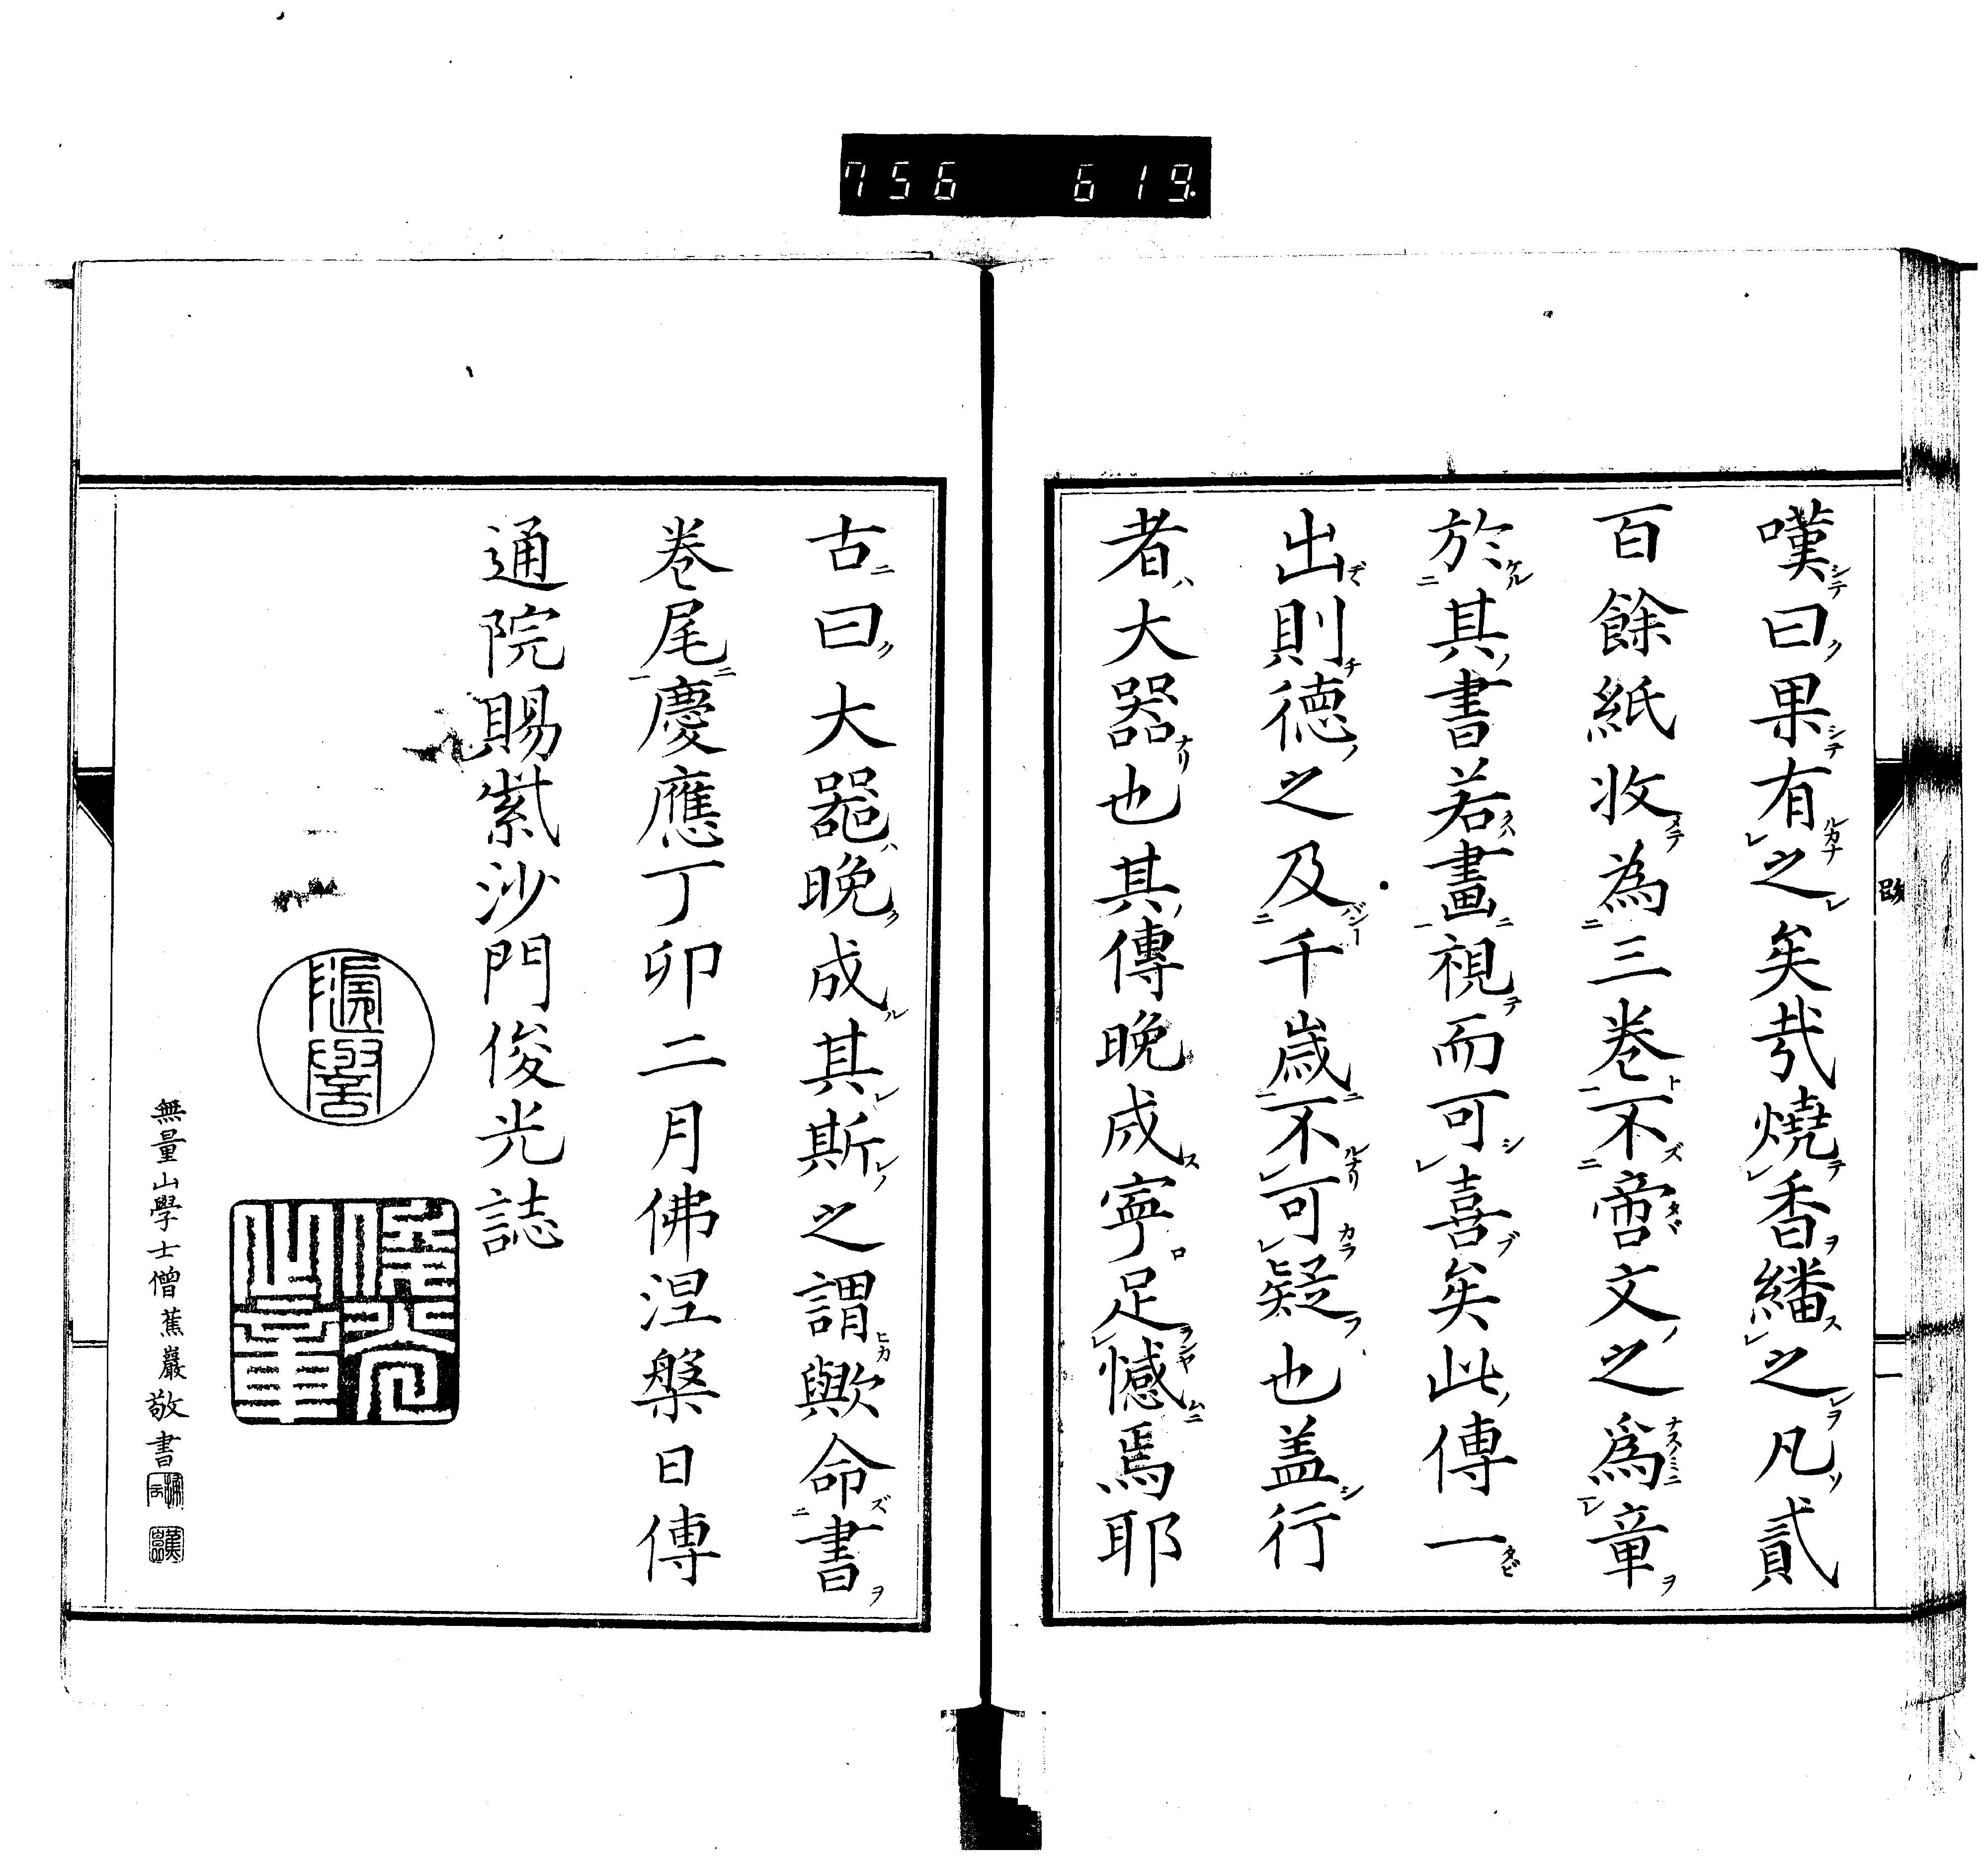 756 619.
嘆曰果有之矣哉燒香繙之凡貳
百餘紙收為三卷不啻文之爲章
於其書若畫視而可喜矣此傳一
出則德之及千歲不可疑也盖行
者大器也其傳晩成寧足憾焉耶
跋
一
古曰大器晩成其斯之謂歟命書
卷尾慶應丁卯二月佛涅槃日傳
通院賜紫沙門俊光誌
無量山學士僧蕉巖敬書